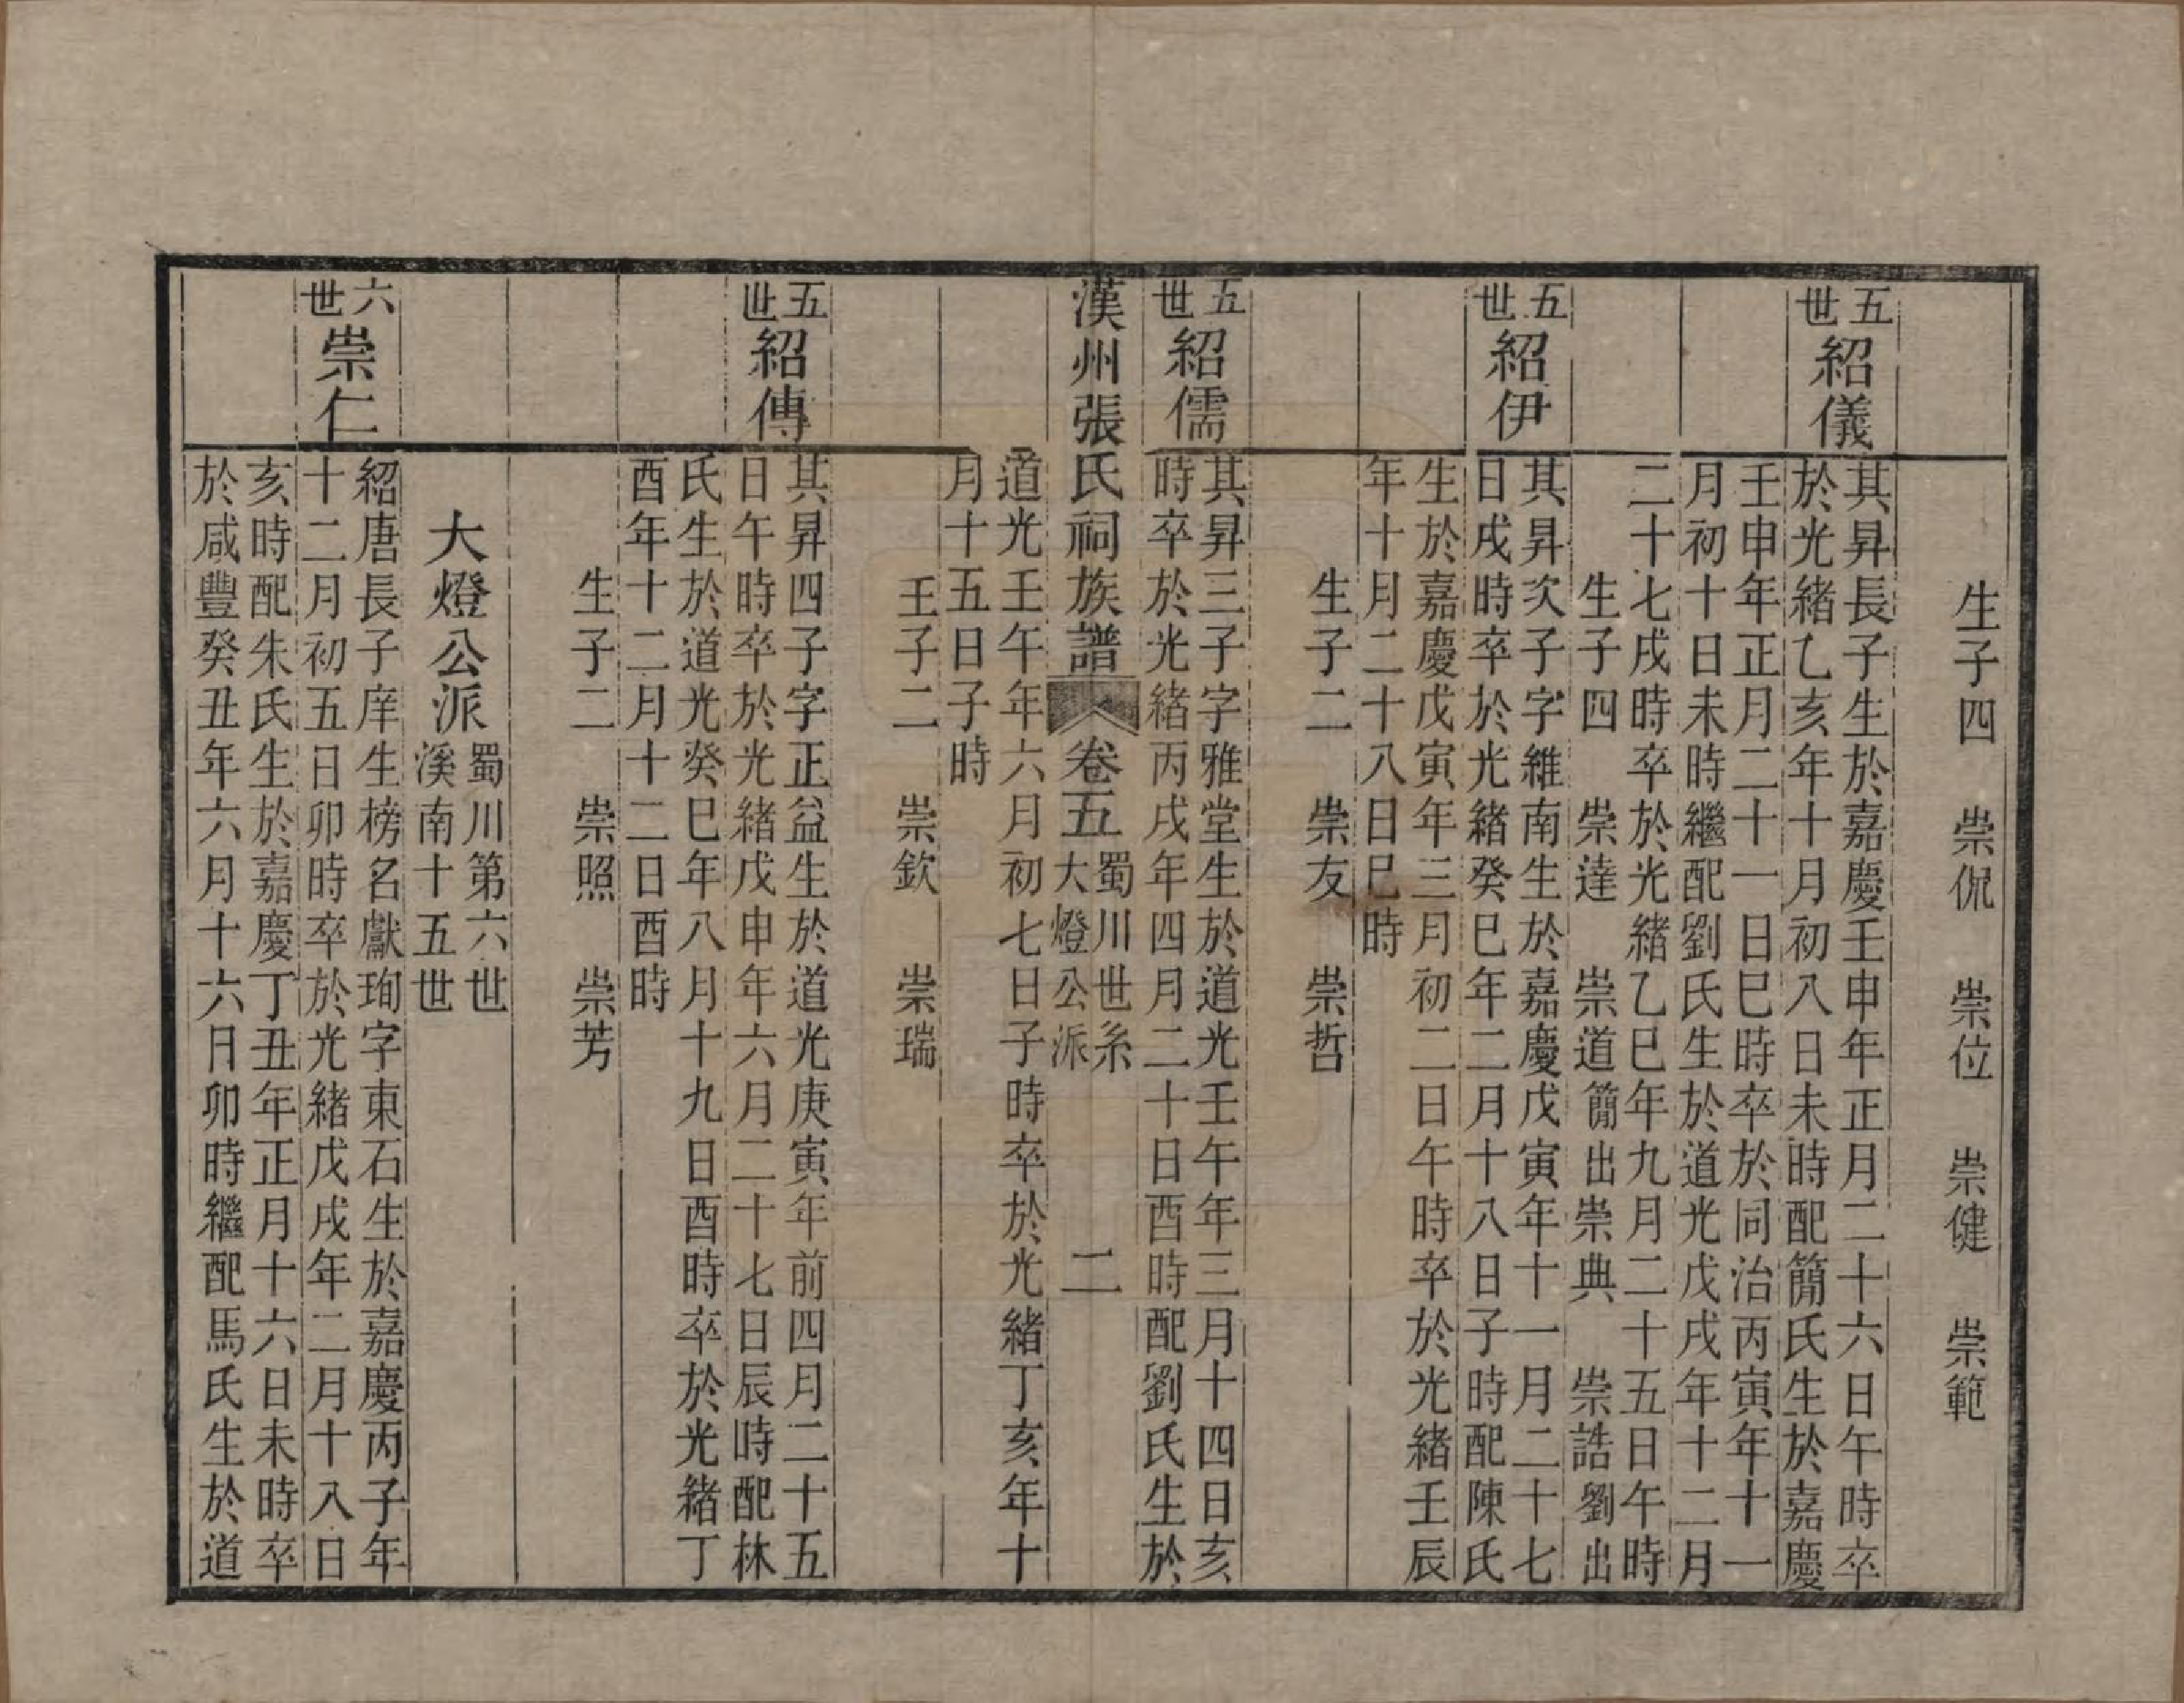 生子四　崇侃　崇位　崇健　崇範
五世　紹儀
其昇長子生於嘉慶壬申年正月二十六日午時卒
於光緒乙亥年十月初八日未時配簡氏生於嘉慶
壬申年正月二十一日巳時卒於同治丙寅年十一
月初十日未時繼配劉氏生於道光戊戌年十二月
二十七戌時卒於光緒乙巳年九月二十五日午時
生子四　崇達　崇道簡出崇典　崇誥劉出
五世　紹伊
其昇次子字維南生於嘉慶戊寅年十一月二十七
日戌時卒於光緒癸巳年二月十八日子時配陳氏
生於嘉慶戊寅年三月初二日午時卒於光緒壬辰
年十月二十八日巳時
生子二　崇友　崇哲
五世　紹儒
其昇三子字雅堂生於道光壬午年三月十四日亥
時卒於光緒丙戌年四月二十日酉時配劉氏生於
漢州張氏祠族譜　卷五　蜀川世系　大燈公派　二
道光壬午年六月初七日子時卒於光緒丁亥年十
月十五日子時
壬子二　崇欽　崇瑞
五世　紹傳
其昇四子字正益生於道光庚寅年前四月二十五
日午時卒於光緒戊申年六月二十七日辰時配林
氏生於道光癸巳年八月十九日酉時卒於光緒丁
酉年十二月十二日酉時
生子二　崇照　崇芳
大燈公派　蜀川第六世　溪南十五世
六世　崇仁
紹唐長子庠生榜名獻珣字東石生於嘉慶丙子年
十二月初五日卯時卒於光緒戊戌年二月十八日
亥時配朱氏生於嘉慶丁丑年正月十六日未時卒
於咸豐癸丑年六月十六日卯時繼配馬氏生於道